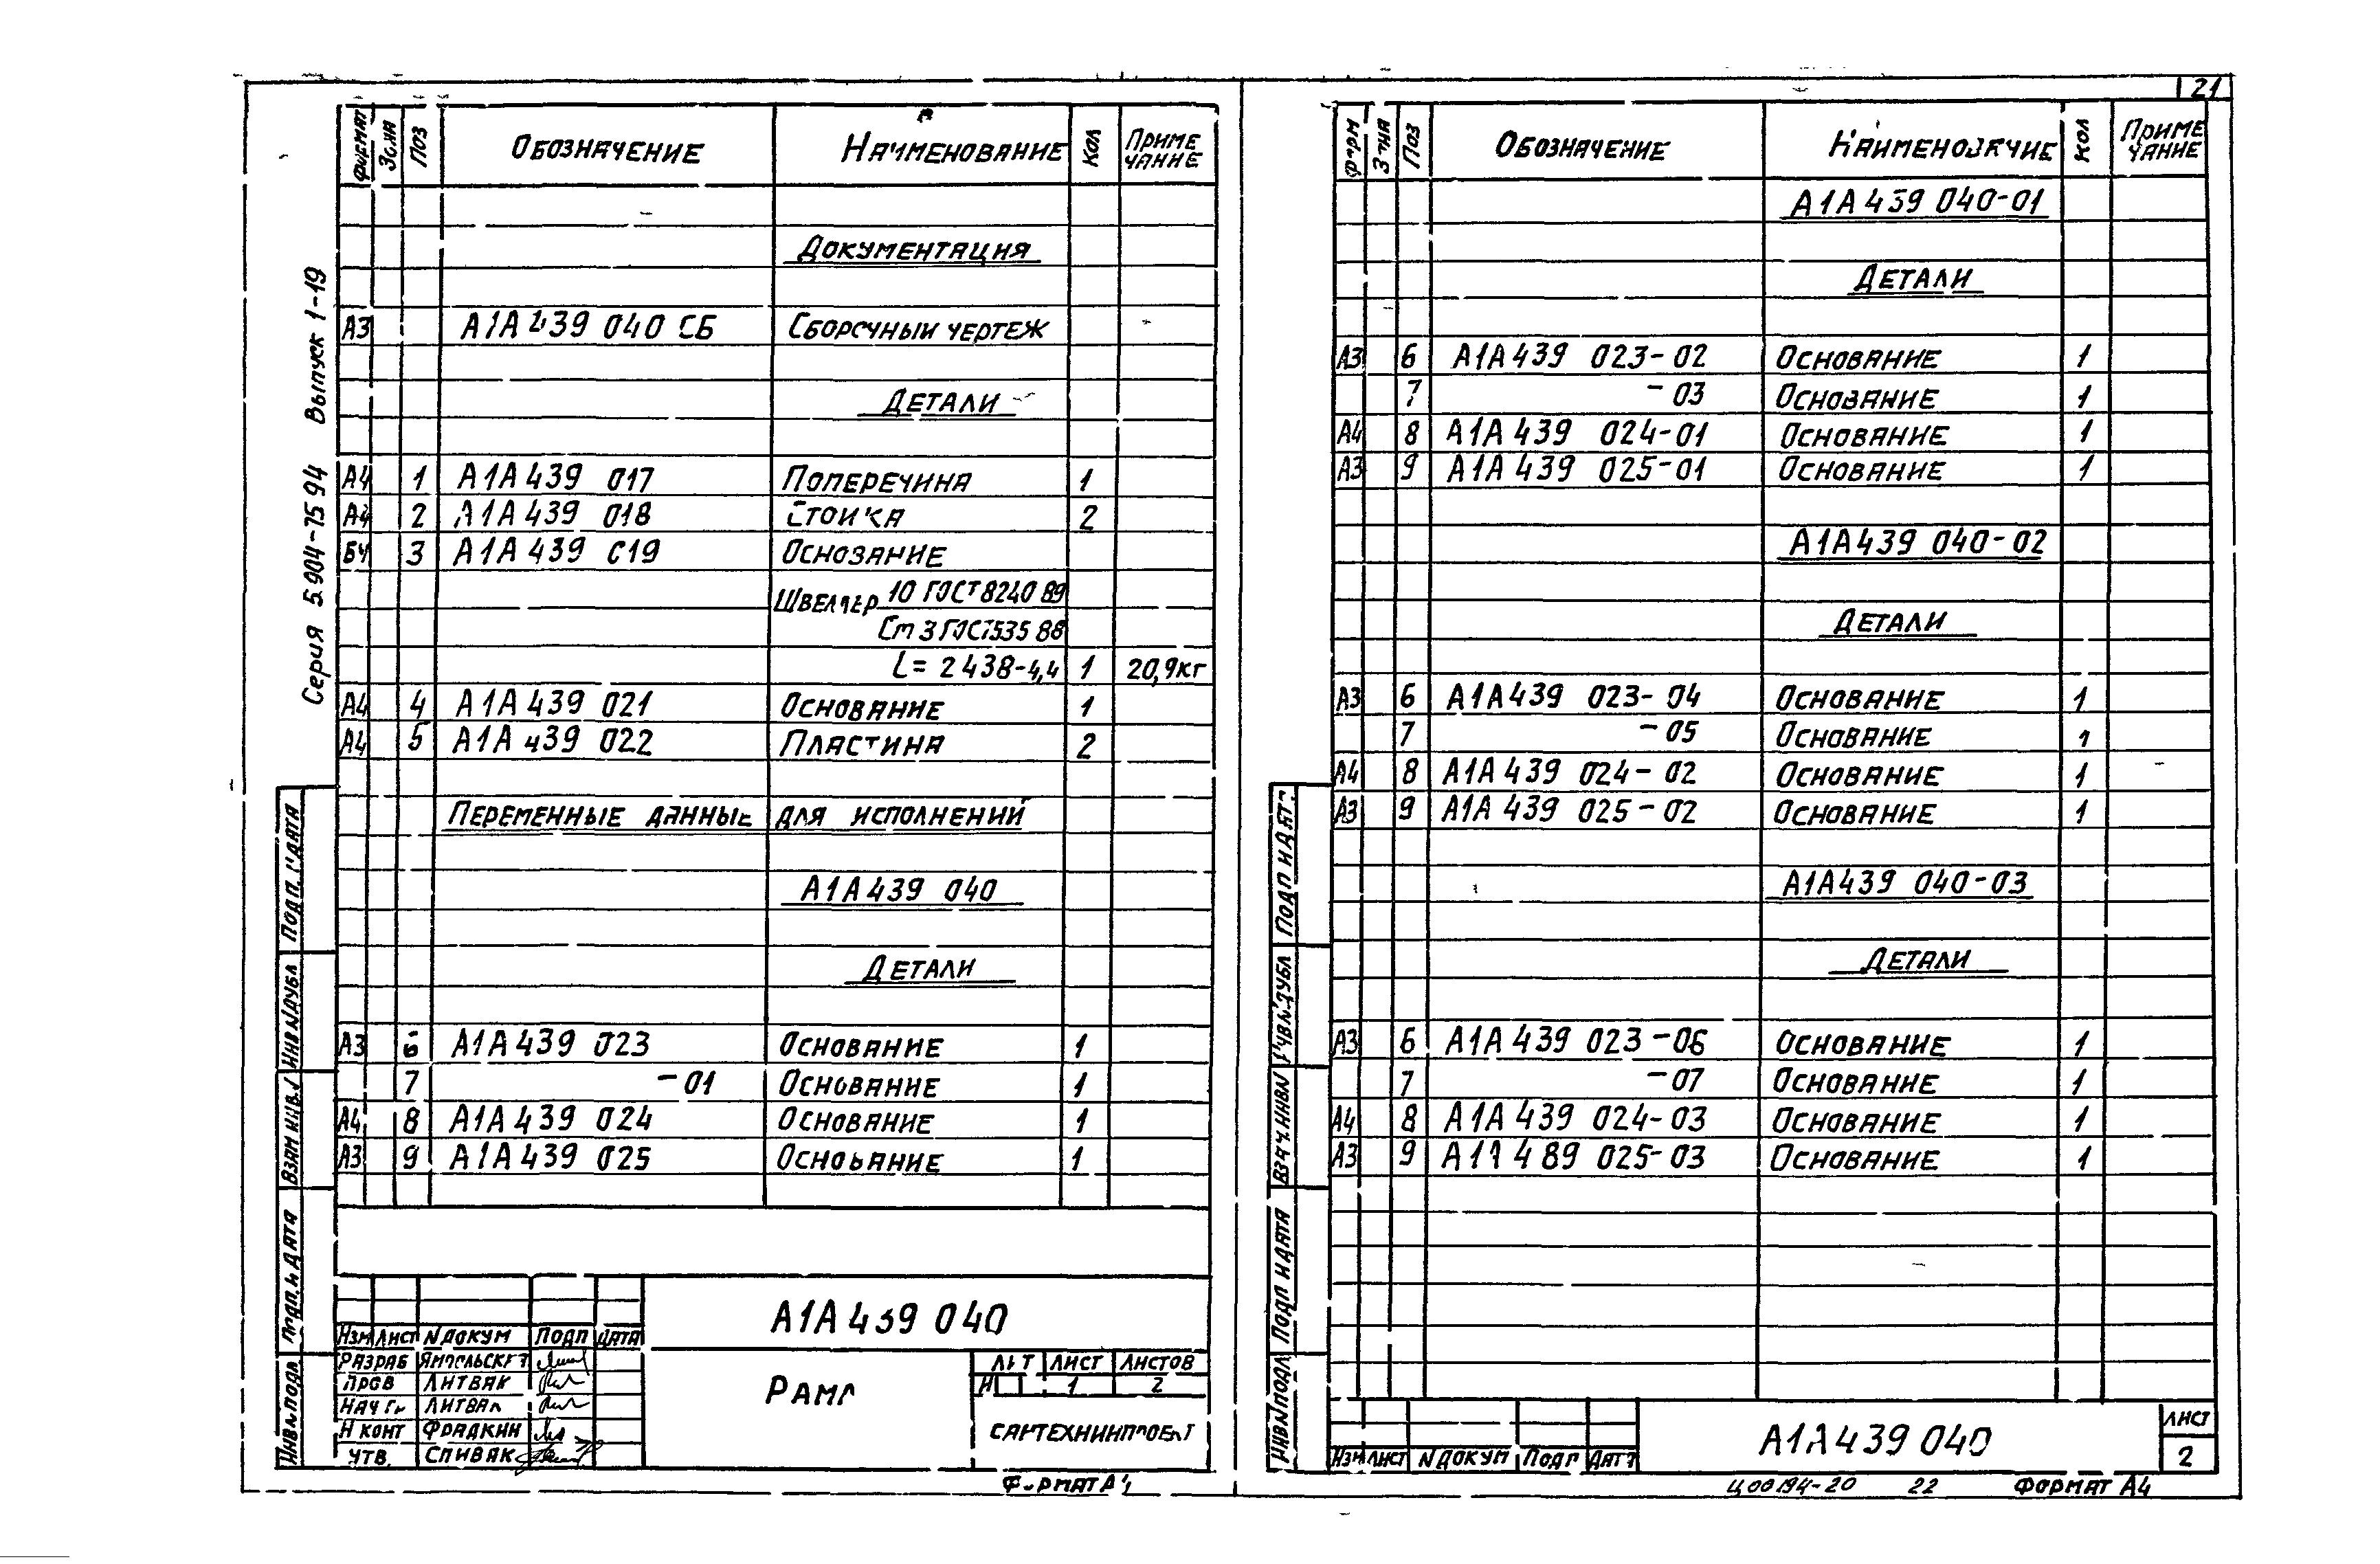 21
Серия 5.904-75 94 Выпуск 1-19
Формат Зона Поз Обозначение Наименование Кол Приме чание
Документация
А3 А1А 439 040 СБ Сборочный чертеж
Детали
А4 1 А1А 439 017 Поперечина 1
А4 2 А1А 439 018 Стойка 2
БЧ 3 А1А 439 019 Основание
Швеллер 10 ГОСТ 8240 89
Ст 3 ГОСТ 535 88
L= 2438-4,4 1 20,9кг
А4 4 А1А 439 021 Основание 1
А4 5 А1А 439 022 Пластина 2
Переменные данные для исполнений
А1А 439 040
Детали
А3 6 А1А 439 023 Основание 1
7 -01 Основание 1
А4 8 А1А 439 024 Основание 1
А3 9 А1А 439 025 Основание 1
Подп. и дата
Инв N дубл
Взам инв. N
Подп. и дата
Инв N подл
А1А 439 040
Изм Лист N докум Подп Дата
Разраб
Пров Литвак
Нач Литвак
Н конт Фрадкин
Утв. Спивак
Рама
Лит Лист Листов
И 1 2
Сантехниипроект
Формат А4
Форм Зона Поз Обозначение Наименование Кол Приме чание
А1А 439 040-01
Детали
А3 6 А1А 439 023-02 Основание 1
7 -03 Основание 1
А4 8 А1А 439 024-01 Основание 1
А3 9 А1А 439 025-01 Основание 1
А1А 439 040-02
Детали
А3 6 А1А 439 023-04 Основание 1
7 -05 Основание 1
А4 8 А1А 439 024-02 Основание 1
А3 9 А1А 439 025-02 Основание 1
А1А 439 040-03
Детали
А3 6 А1А 439 023-06 Основание 1
7 -07 Основание 1
А4 8 А1А 439 024-03 Основание 1
А3 9 А1А 489 025-03 Основание 1
Подп и дат
Инв N дубл
Взам. инв N
Подп и дата
Инв N подл
Изм Лист N докум Подп Дата
А1А 439 040
Лист
2
Ц00194-20 22 Формат А4